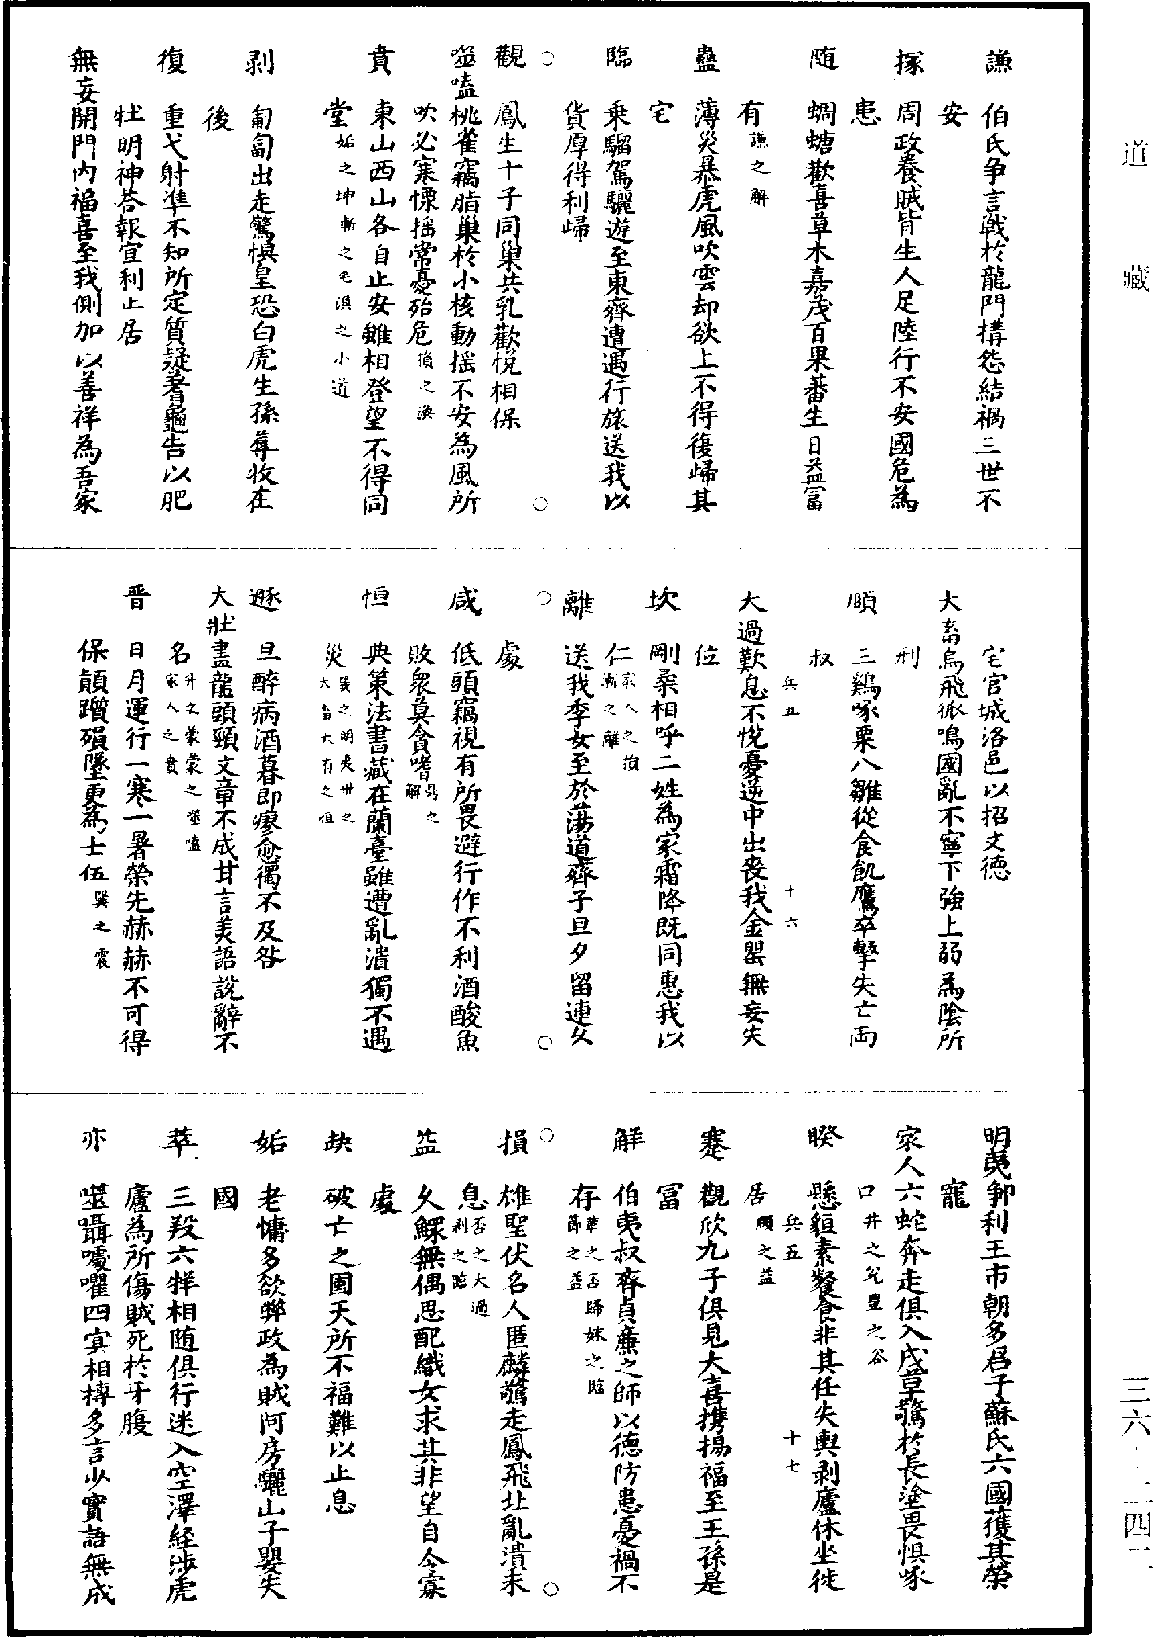 謙　伯氏爭言戰於龍門構怨結禍三世不
安
豫　周政養賊背生人足陸行不安國危為
患
随　蜩螗歡喜草木嘉茂百果蕃生日益富
有謙之解
蠱　薄災暴虎風吹雲却欲上不得復歸其
宅
臨　乗騮駕驪遊至東齊遭遇行旅送我以
貨厚得利歸
○　○
觀　鳳生十子同巢共乳歡悅相保
噬嗑桃雀竊脂巢於小核動搖不安為風所
吹必寒慄摇常憂殆危復之渙
賁　東山西山各自止安雖相登望不得同
堂姤之坤漸之屯渙之小過
剥　匍匐出走驚惧皇恐白虎生孫蓐收在
後
復　重弋射隼不知所定質疑蓍龜告以肥
牡明神荅報宜利止居
無妄開門内福喜至我側加以善祥為吾家
宅官城洛邑以招文德
大畜烏飛狐鳴國亂不寧下強上弱為陰所
刑
頤　三鷄啄粟八雛從食飢鷹卒擊失亡兩
叔
兵五　十六
大過歎息不悅憂逆中出喪我金罌無妄失
位
坎　剛柔相呼二姓為家霜降既同惠我以
仁家人之損漸之離
離　送我季女至於蕩道齊子旦夕留連久
處
○　○
咸　低頭竊視有所畏避行作不利酒酸魚
敗衆莫貪嗜鼎之解
恒　典策法書藏在蘭臺雖遭亂潰獨不遇
災巽之明夷卅之大畜大有之恒
遯　旦醉病酒暮即瘳愈獨不及咎
大壯畫龍頭頸文章不成甘言美語說辭不
名升之蒙蒙之噬嗑家人之賁
晉　日月運行一寒一暑榮先赫赫不可得
保顛躓殞墜更為士伍巽之震
明夷郵利王市朝多君子蘇氏六國獲其榮
寵
家人六蛇奔走俱入茂草驚於長塗畏惧啄
口井之兌豐之谷
兵五　十七
睽　懸貆素餐食非其任失輿剥廬休坐徙
居頤之益
蹇　觀欣九子俱見大喜携揚福至王孫是
冨
解　伯夷叔齊貞廉之師以德防患憂禍不
存革之否歸妹之臨節之益
○　○
損　雄聖伏名人匿麟驚走鳳飛北亂潰未
息否之大過利之臨
益　久鰥無偶思配織女求其非望自令寡
處
夬　破亡之國天所不福難以止息
姤　老慵多欲弊政為賊阿房驪山子嬰失
國
萃　三羖六牂相随俱行迷入空澤経涉虎
廬為所傷賊死於牙腹
亦　噬囁嚘嚁四寅相摶多言少實語無成
道藏
三六
四二